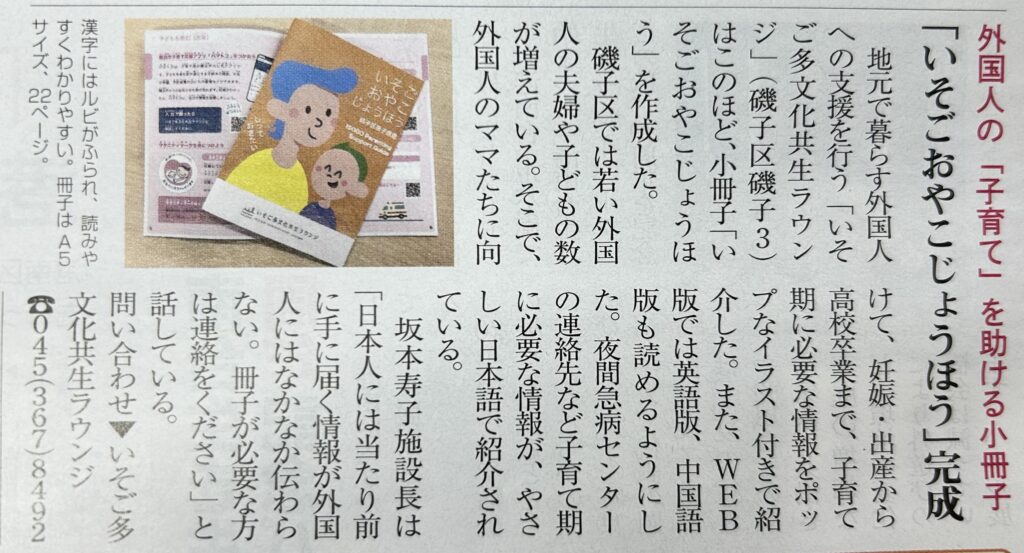 外国人の「子育て」を助ける小冊子
「いそごおやこじょうほう」完成
地元で暮らす外国人
への支援を行う「いそ
ご多文化共生ラウン
ジ」(磯子区磯子3)
はこのほど、小冊子「い
そごおやこじょうほ
う」を作成した。
磯子区では若い外国
人の夫婦や子どもの数
が増えている。そこで、
外国人のママたちに向
けて、妊娠・出産から
高校卒業まで、子育て
期に必要な情報をポッ
プなイラスト付きで紹
介した。また、WEB
版では英語版、中国語
版も読めるようにし
た。夜間急病センター
の連絡先など子育て期
に必要な情報が、やさ
しい日本語で紹介され
ている。
坂本寿子施設長は
「日本人には当たり前
に手に届く情報が外国
人にはなかなか伝わら
ない。冊子が必要な方
は連絡をください」と
話している。
問い合わせ▼いそご多
文化共生ラウンジ
☎045(367)8492
いそご
おやこ
じょうほう
ISOGO Parenting
Support Guide
いそご多文化共生ラウンジ
漢字にはルビがふられ、読みや
すくわかりやすい。冊子はA5
サイズ、22ページ。